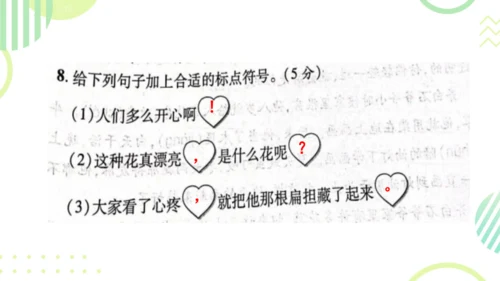 8.给下列句子加上合适的标点符号。(5分)
(1)人们多么开心啊！
(2)这种花真漂亮，是什么花呢？
(3)大家看了心疼，就把他那根扁担藏了起来。